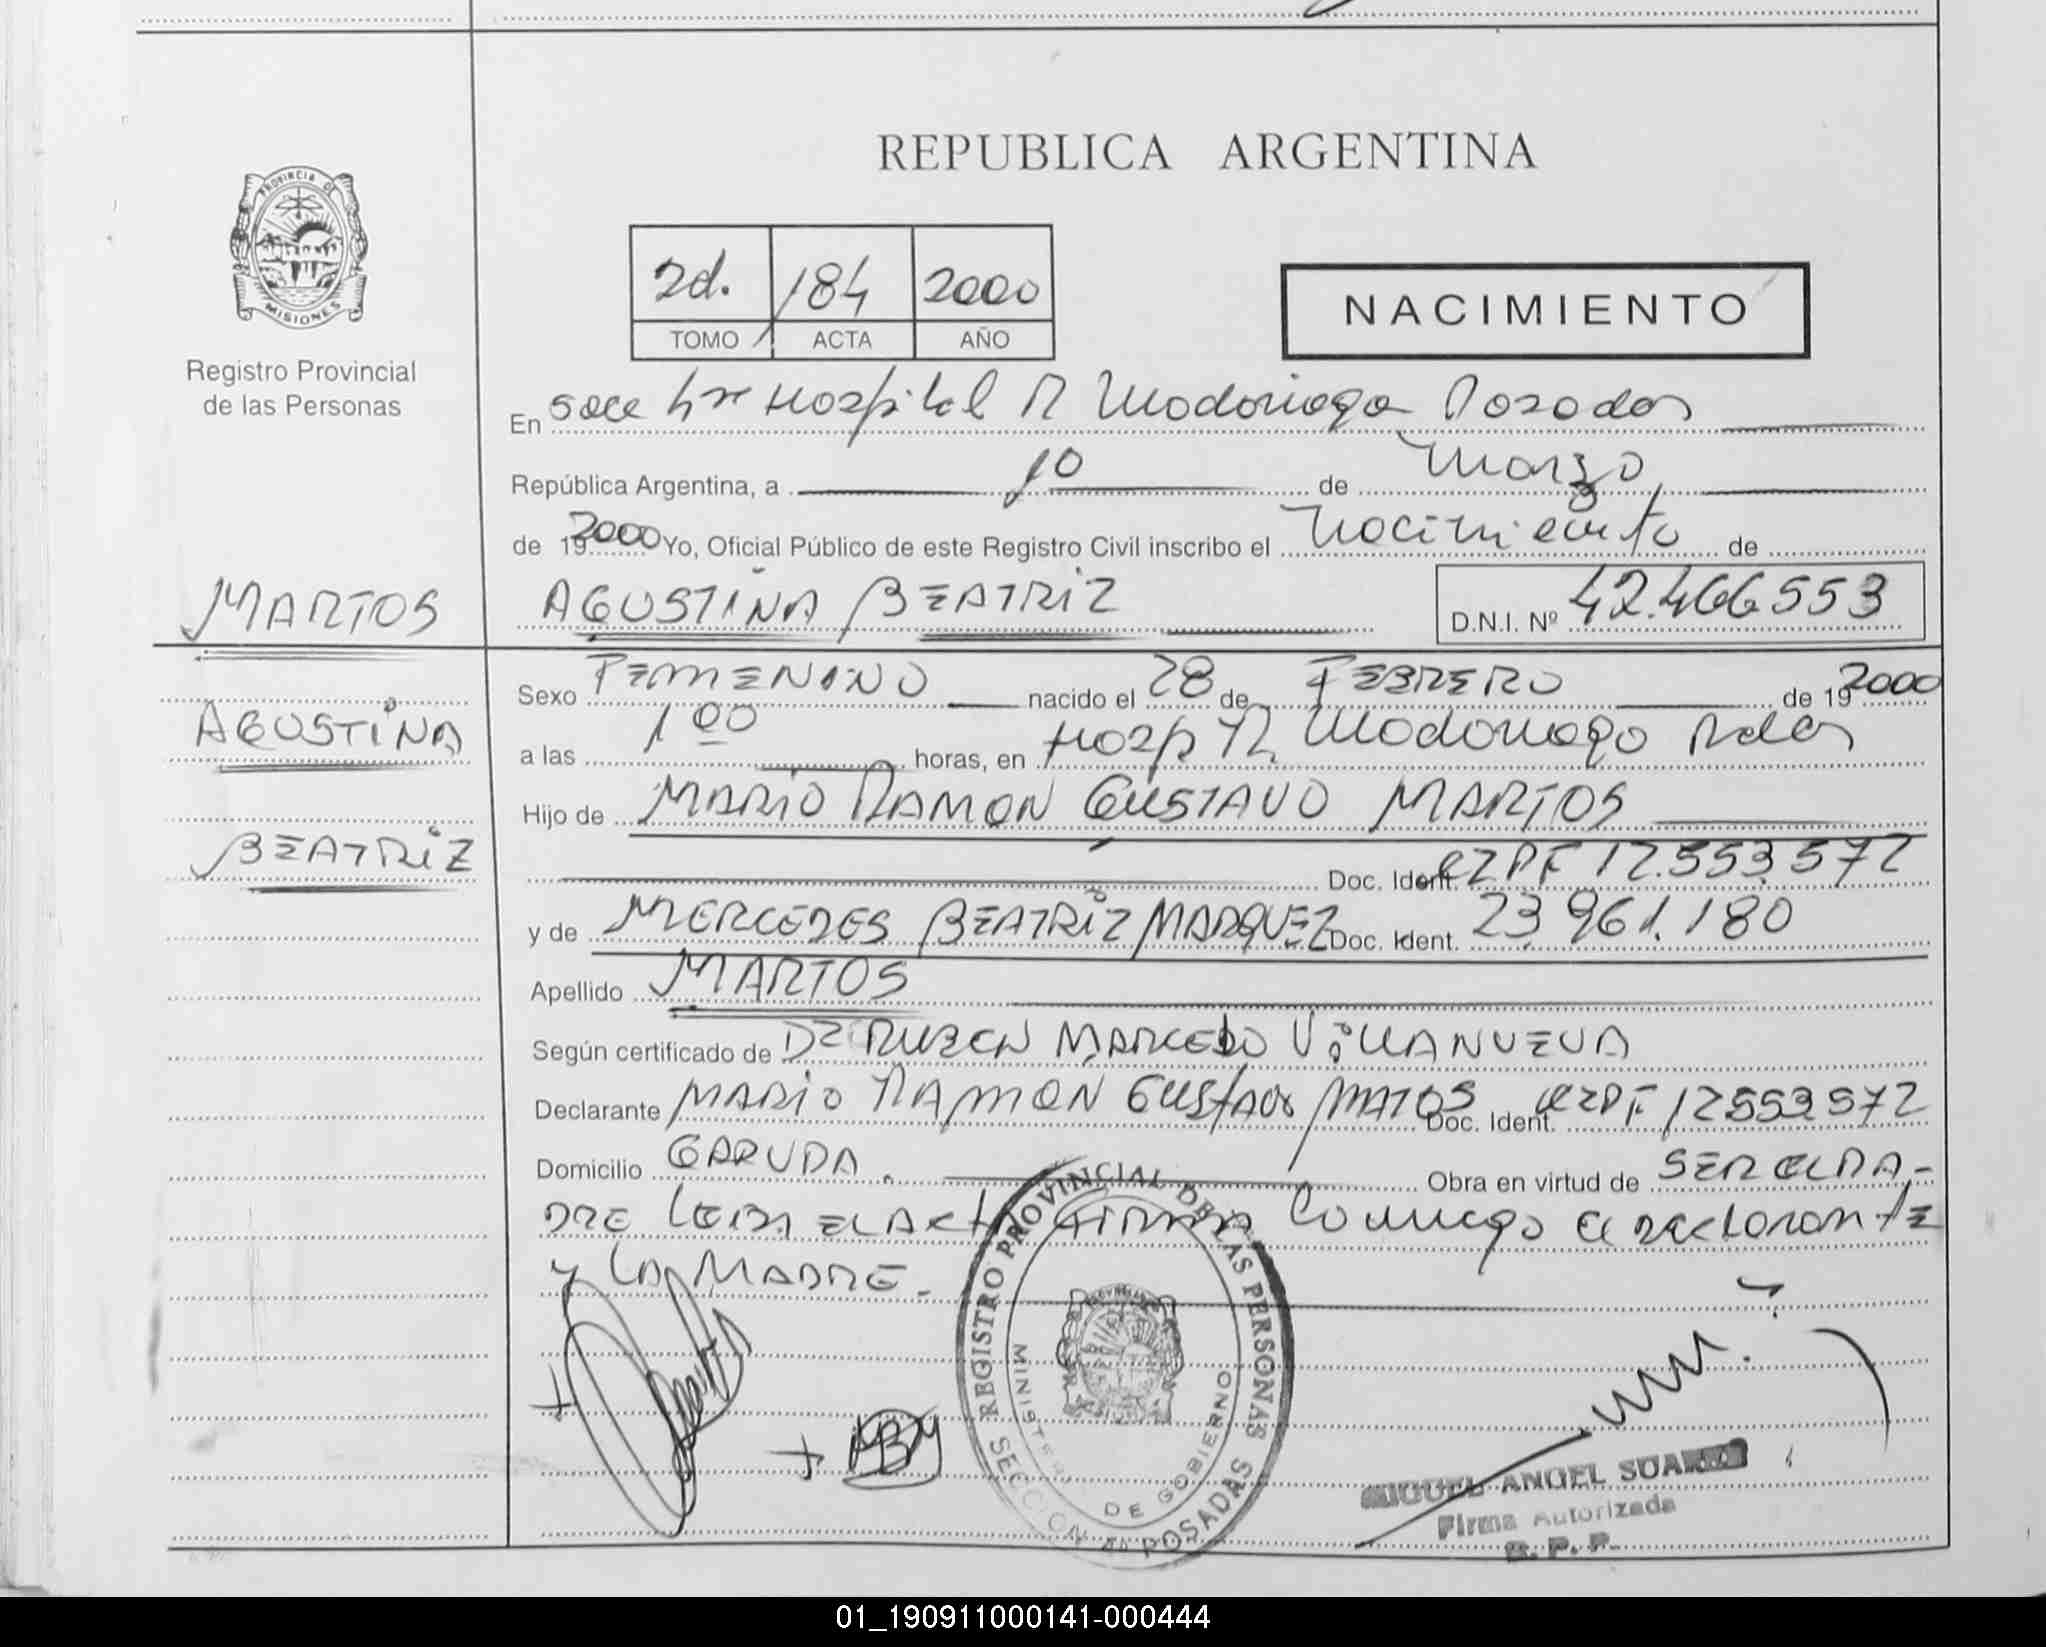 REPUBLICA ARGENTINA
PROVINCIA DE
MISIONES
Registro Provincial
de las Personas
2d. 184 2000
TOMO ACTA AÑO
NACIMIENTO
En Hospital R Madariaga Posadas
República Argentina, a 10 de Marzo
de 19 2000 Yo, Oficial Público de este Registro Civil inscribo el Nacimiento de
MARTOS
AGUSTINA BEATRIZ
D.N.I. Nº 42.466.553
Sexo FEMENINO nacido el 28 de FEBRERO de 19 2000
AGUSTINA
a las 1 00 horas, en Hosp R Madariaga Pdas
Hijo de MARIO RAMON GUSTAVO MARTOS
BEATRIZ
Doc. Ident. CZPF 12.553.572
y de MERCEDES BEATRIZ MARQUEZ Doc. Ident. 23.961.180
Apellido MARTOS
Según certificado de RUBEN MARCELO VILLANUEVA
Declarante MARIO RAMON GUSTAVO MATOS Doc. Ident. CZPF 12553572
Domicilio GARUPA. Obra en virtud de SER EL PA-
DRE LEIDA EL ACTA FIRMA Conmigo el declarante
Y LA MADRE.
REGISTRO PROVINCIAL DE LAS PERSONAS
MINISTERIO DE GOBIERNO
SECCION POSADAS
MIGUEL ANGEL SUAREZ
Firma Autorizada
R. P. P.
01_190911000141-000444